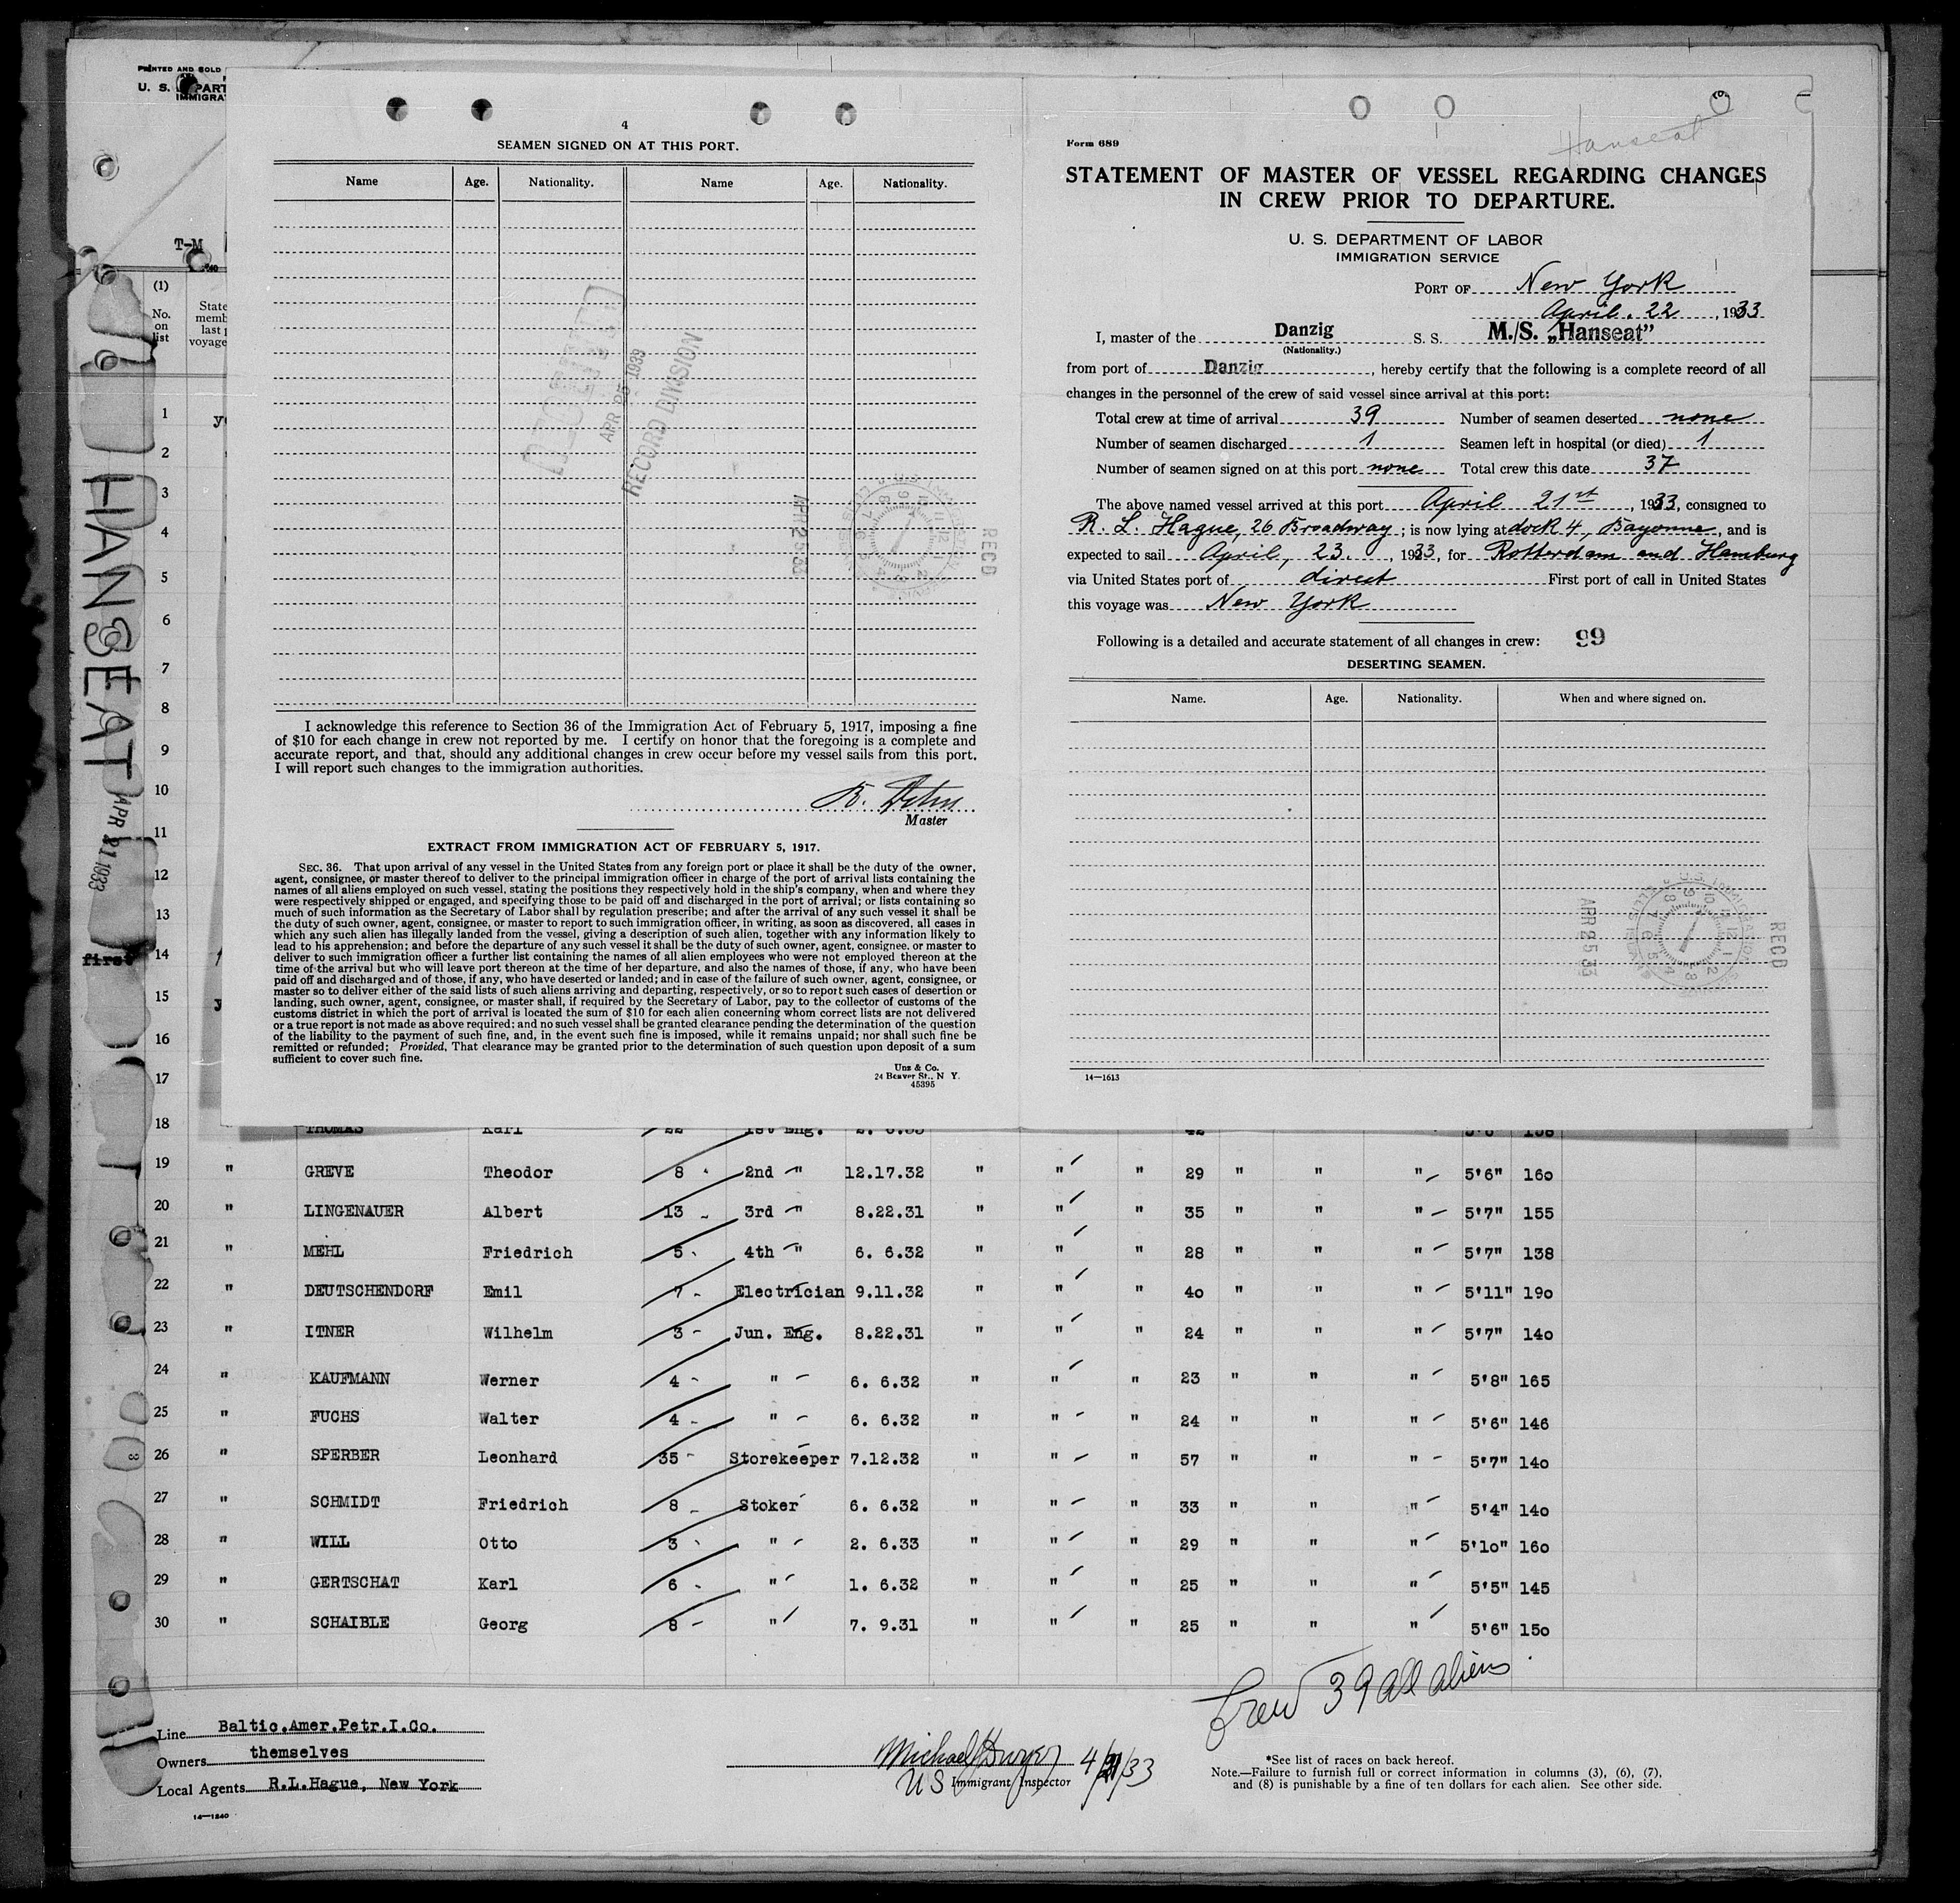 PRINTED AND SOLD
U. S.
IMMIGRA
T-M
(1)
No. on list
State
memb
last
voyage
HANSEAT
APR 21 1933
first
4
SEAMEN SIGNED ON AT THIS PORT.
Name Age. Nationality. Name Age. Nationality.
APR 25 1933
RECORD DIVISION
APR 25 33
REC'D
I acknowledge this reference to Section 36 of the Immigration Act of February 5, 1917, imposing a fine
of $10 for each change in crew not reported by me. I certify on honor that the foregoing is a complete and
accurate report, and that, should any additional changes in crew occur before my vessel sails from this port,
I will report such changes to the immigration authorities.
Master
EXTRACT FROM IMMIGRATION ACT OF FEBRUARY 5, 1917.
SEC. 36. That upon arrival of any vessel in the United States from any foreign port or place it shall be the duty of the owner,
agent, consignee, or master thereof to deliver to the principal immigration officer in charge of the port of arrival lists containing the
names of all aliens employed on such vessel, stating the positions they respectively hold in the ship's company, when and where they
were respectively shipped or engaged, and specifying those to be paid off and discharged in the port of arrival; or lists containing so
much of such information as the Secretary of Labor shall by regulation prescribe; and after the arrival of any such vessel it shall be
the duty of such owner, agent, consignee, or master to report to such immigration officer, in writing, as soon as discovered, all cases in
which any such alien has illegally landed from the vessel, giving a description of such alien, together with any information likely to
lead to his apprehension; and before the departure of any such vessel it shall be the duty of such owner, agent, consignee, or master to
deliver to such immigration officer a further list containing the names of all alien employees who were not employed thereon at the
time of the arrival but who will leave port thereon at the time of her departure, and also the names of those, if any, who have been
paid off and discharged and of those, if any, who have deserted or landed; and in case of the failure of such owner, agent, consignee, or
master so to deliver either of the said lists of such aliens arriving and departing, respectively, or so to report such cases of desertion or
landing, such owner, agent, consignee, or master shall, if required by the Secretary of Labor, pay to the collector of customs of the
customs district in which the port of arrival is located the sum of $10 for each alien concerning whom correct lists are not delivered
or a true report is not made as above required; and no such vessel shall be granted clearance pending the determination of the question
of the liability to the payment of such fine, and, in the event such fine is imposed, while it remains unpaid; nor shall such fine be
remitted or refunded; Provided, That clearance may be granted prior to the determination of such question upon deposit of a sum
sufficient to cover such fine.
Unz & Co.
24 Beaver St., N Y.
45395
Hanseat
Form 689
STATEMENT OF MASTER OF VESSEL REGARDING CHANGES
IN CREW PRIOR TO DEPARTURE.
U. S. DEPARTMENT OF LABOR
IMMIGRATION SERVICE
PORT OF New York
April. 22, 1933
I, master of the Danzig S. S. M./S. „Hanseat"
(Nationality.)
from port of Danzig, hereby certify that the following is a complete record of all
changes in the personnel of the crew of said vessel since arrival at this port:
Total crew at time of arrival 39 Number of seamen deserted none
Number of seamen discharged 1 Seamen left in hospital (or died) 1
Number of seamen signed on at this port none Total crew this date 37
The above named vessel arrived at this port April 21st, 1933, consigned to
R. L. Hague, 26 Broadway; is now lying at dock 4, Bayonne, and is
expected to sail April, 23., 1933, for Rotterdam and Hamburg
via United States port of direct First port of call in United States
this voyage was New York
Following is a detailed and accurate statement of all changes in crew: 99
DESERTING SEAMEN.
Name. Age. Nationality. When and where signed on.
APR 25 33
REC'D
14—1613
1
2
3
4
5
6
7
8
9
10
11
12
13
14
15
16
17
18 THOMAS Karl 22 1st Eng. 42 158
19 " GREVE Theodor 8 2nd " 12.17.32 " " " 29 " " " 5'6" 160
20 " LINGENAUER Albert 13 3rd " 8.22.31 " " " 35 " " " 5'7" 155
21 " MEHL Friedrich 5 4th " 6. 6.32 " " " 28 " " " 5'7" 138
22 " DEUTSCHENDORF Emil 7 Electrician 9.11.32 " " " 40 " " " 5'11" 190
23 " ITNER Wilhelm 3 Jun. Eng. 8.22.31 " " " 24 " " " 5'7" 140
24 " KAUFMANN Werner 4 " 6. 6.32 " " " 23 " " " 5'8" 165
25 " FUCHS Walter 4 " 6. 6.32 " " " 24 " " " 5'6" 146
26 " SPERBER Leonhard 35 Storekeeper 7.12.32 " " " 57 " " " 5'7" 140
27 " SCHMIDT Friedrich 8 Stoker 6. 6.32 " " " 33 " " " 5'4" 140
28 " WILL Otto 3 " 2. 6.33 " " " 29 " " " 5'10" 160
29 " GERTSCHAT Karl 6 " 1. 6.32 " " " 25 " " " 5'5" 145
30 " SCHAIBLE Georg 8 " 7. 9.31 " " " 25 " " " 5'6" 150
Crew 39 all aliens
Line Baltic.Amer.Petr.I.Co.
Owners themselves
Local Agents R.L.Hague, New York
14—1240
Michael Dwyer 4/21/33
US Immigrant Inspector
*See list of races on back hereof.
Note.—Failure to furnish full or correct information in columns (3), (6), (7),
and (8) is punishable by a fine of ten dollars for each alien. See other side.